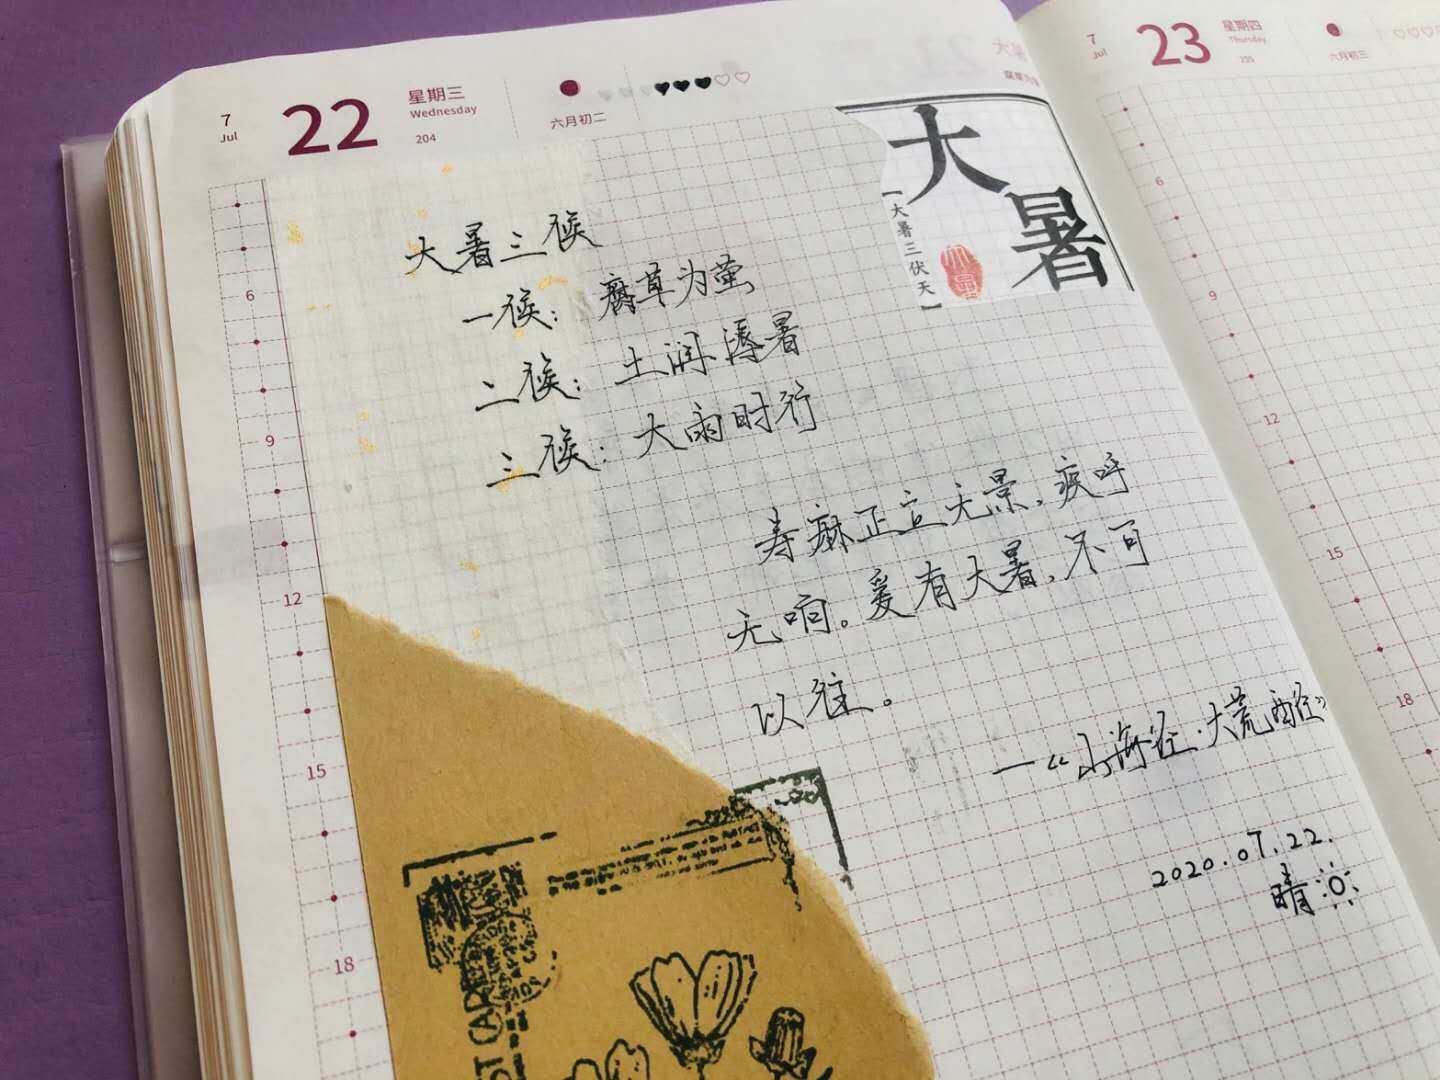 7
Jul
22
星期三
Wednesday
204
六月初二
大暑
【大暑三伏天】
大暑三候
一候：腐草为萤
二候：土润溽暑
三候：大雨时行
寿麻正立无景，疾呼
无响。爰有大暑，不可
以往。
—《山海经·大荒西经》
2020.07.22.
晴
6
9
12
15
18
7
Jul
23
星期四
Thursday
205
六月初三
6
9
12
15
18